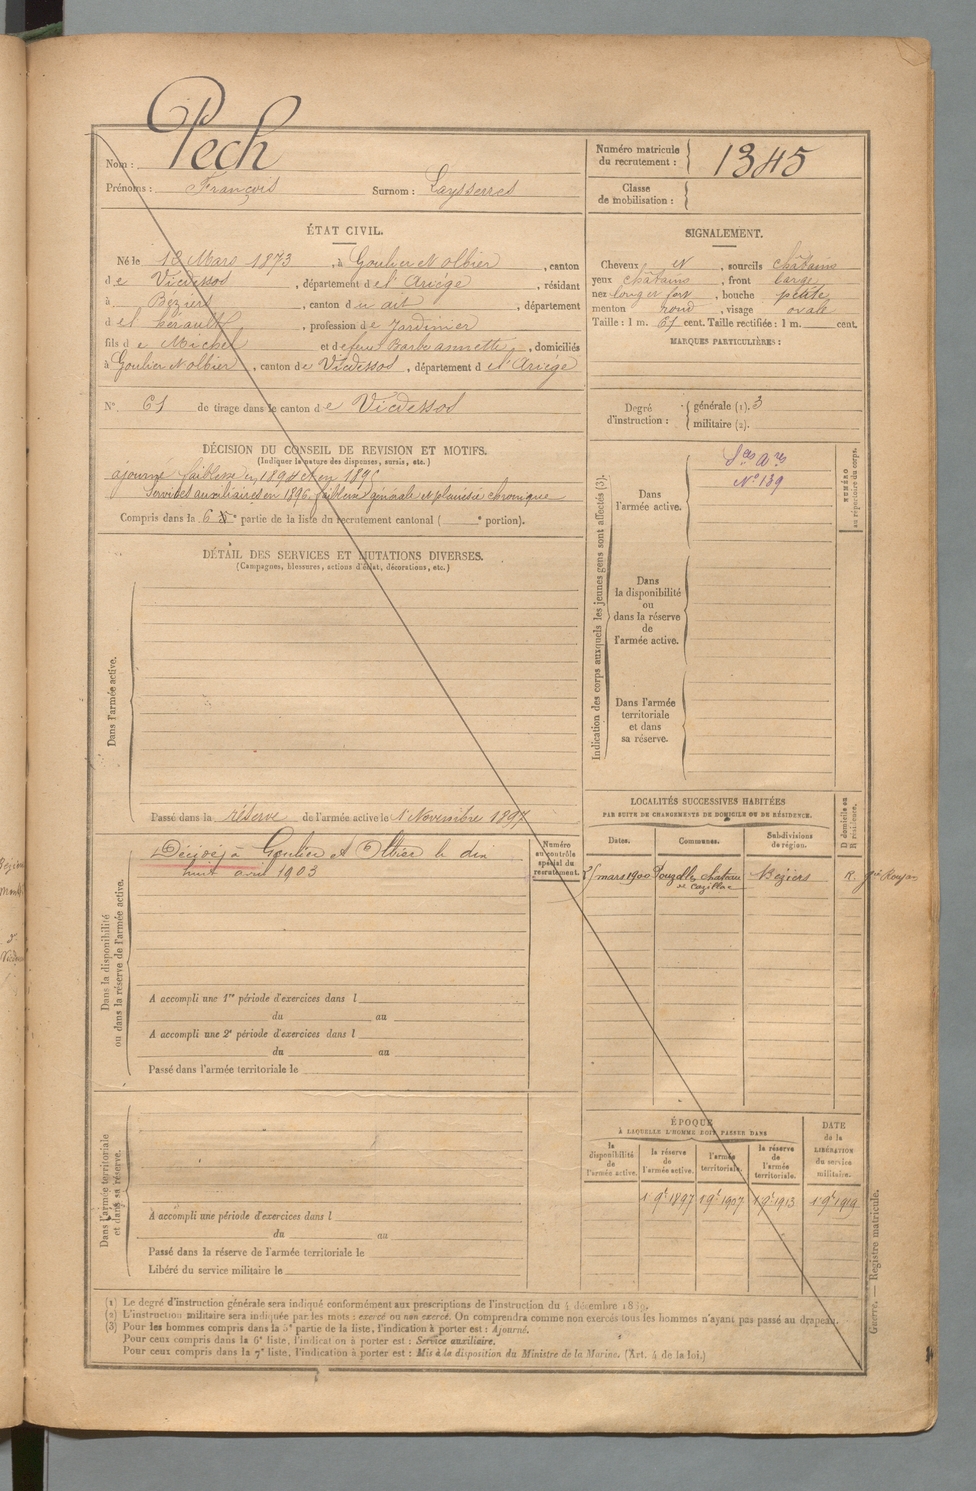 Nom : Pech
Prénoms : François Surnom : Laysserres
Numéro matricule du recrutement : 1345
Classe de mobilisation :
ÉTAT CIVIL.
Né le 12 Mars 1873, à Goulier et Olbier, canton
de Vicdessos, département de l'Ariège, résidant
à Béziers, canton du dit, département
d el hérault, profession de Jardinier
fils de Michel et de feu Barbe annette, domiciliés
à Goulier et olbier, canton de Vicdessos, département d el'Ariége
N° 61 de tirage dans le canton de Vicdessos
SIGNALEMENT.
Cheveux et, sourcils châtains
yeux châtains, front large
nez long et fort, bouche petite
menton rond, visage ovale
Taille : 1 m. 61 cent. Taille rectifiée : 1 m. cent.
MARQUES PARTICULIÈRES :
Degré d'instruction : générale (1). 3
militaire (2).
DÉCISION DU CONSEIL DE REVISION ET MOTIFS.
(Indiquer la nature des dispenses, sursis, etc.)
ajourné faiblesse en 1894 et en 1895
Services auxiliaires en 1896. faiblesse générale et pleurésie chronique
Compris dans la 6e partie de la liste du recrutement cantonal ( e portion).
DÉTAIL DES SERVICES ET MUTATIONS DIVERSES.
(Campagnes, blessures, actions d'éclat, décorations, etc.)
Dans l'armée active.
Passé dans la réserve de l'armée active le 1r Novembre 1897
Indication des corps auxquels les jeunes gens sont affectés (3).
Dans l'armée active.
Sces Ares
N° 139
NUMÉRO au répertoire du corps.
Dans la disponibilité ou dans la réserve de l'armée active.
Dans l'armée territoriale et dans sa réserve.
Dans la disponibilité ou dans la réserve de l'armée active.
Décédé à Goulier et Olbier le dix
huit avril 1903
Numéro au contrôle spécial du recrutement.
A accompli une 1re période d'exercices dans l
du au
A accompli une 2e période d'exercices dans l
du au
Passé dans l'armée territoriale le
LOCALITÉS SUCCESSIVES HABITÉES
PAR SUITE DE CHANGEMENTS DE DOMICILE OU DE RÉSIDENCE.
Dates. Communes. Subdivisions de région. D domicile ou R résidence.
25 mars 1900 Pouzolles chateau de Cazillac Béziers R. Gie Roujan
Dans l'armée territoriale et dans sa réserve.
A accompli une période d'exercices dans l
du au
Passé dans la réserve de l'armée territoriale le
Libéré du service militaire le
ÉPOQUE
À LAQUELLE L'HOMME DOIT PASSER DANS
la disponibilité de l'armée active. la réserve de l'armée active. l'armée territoriale. la réserve de l'armée territoriale. DATE de la LIBÉRATION du service militaire.
1 9e 1897 1 9e 1907 1 9e 1913 1 9e 1919
(1) Le degré d'instruction générale sera indiqué conformément aux prescriptions de l'instruction du 4 décembre 1889.
(2) L'instruction militaire sera indiquée par les mots : exercé ou non exercé. On comprendra comme non exercés tous les hommes n'ayant pas passé au drapeau.
(3) Pour les hommes compris dans la 5e partie de la liste, l'indication à porter est : Ajourné.
Pour ceux compris dans la 6e liste, l'indication à porter est : Service auxiliaire.
Pour ceux compris dans la 7e liste, l'indication à porter est : Mis à la disposition du Ministre de la Marine. (Art. 4 de la loi.)
Guerre. — Registre matricule.